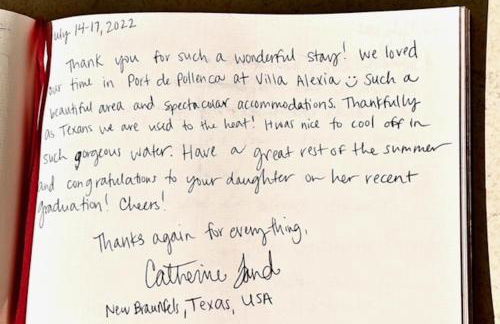 July 14-17, 2022
Thank you for such a wonderful stay! We loved
our time in Port de Pollenca at Villa Alexia ☺ Such a
beautiful area and spectacular accommodations. Thankfully
as Texans we are used to the heat! It was nice to cool off in
such gorgeous water. Have a great rest of the summer
and congratulations to your daughter on her recent
graduation! Cheers!
Thanks again for everything,
Catherine
New Braunfels, Texas, USA